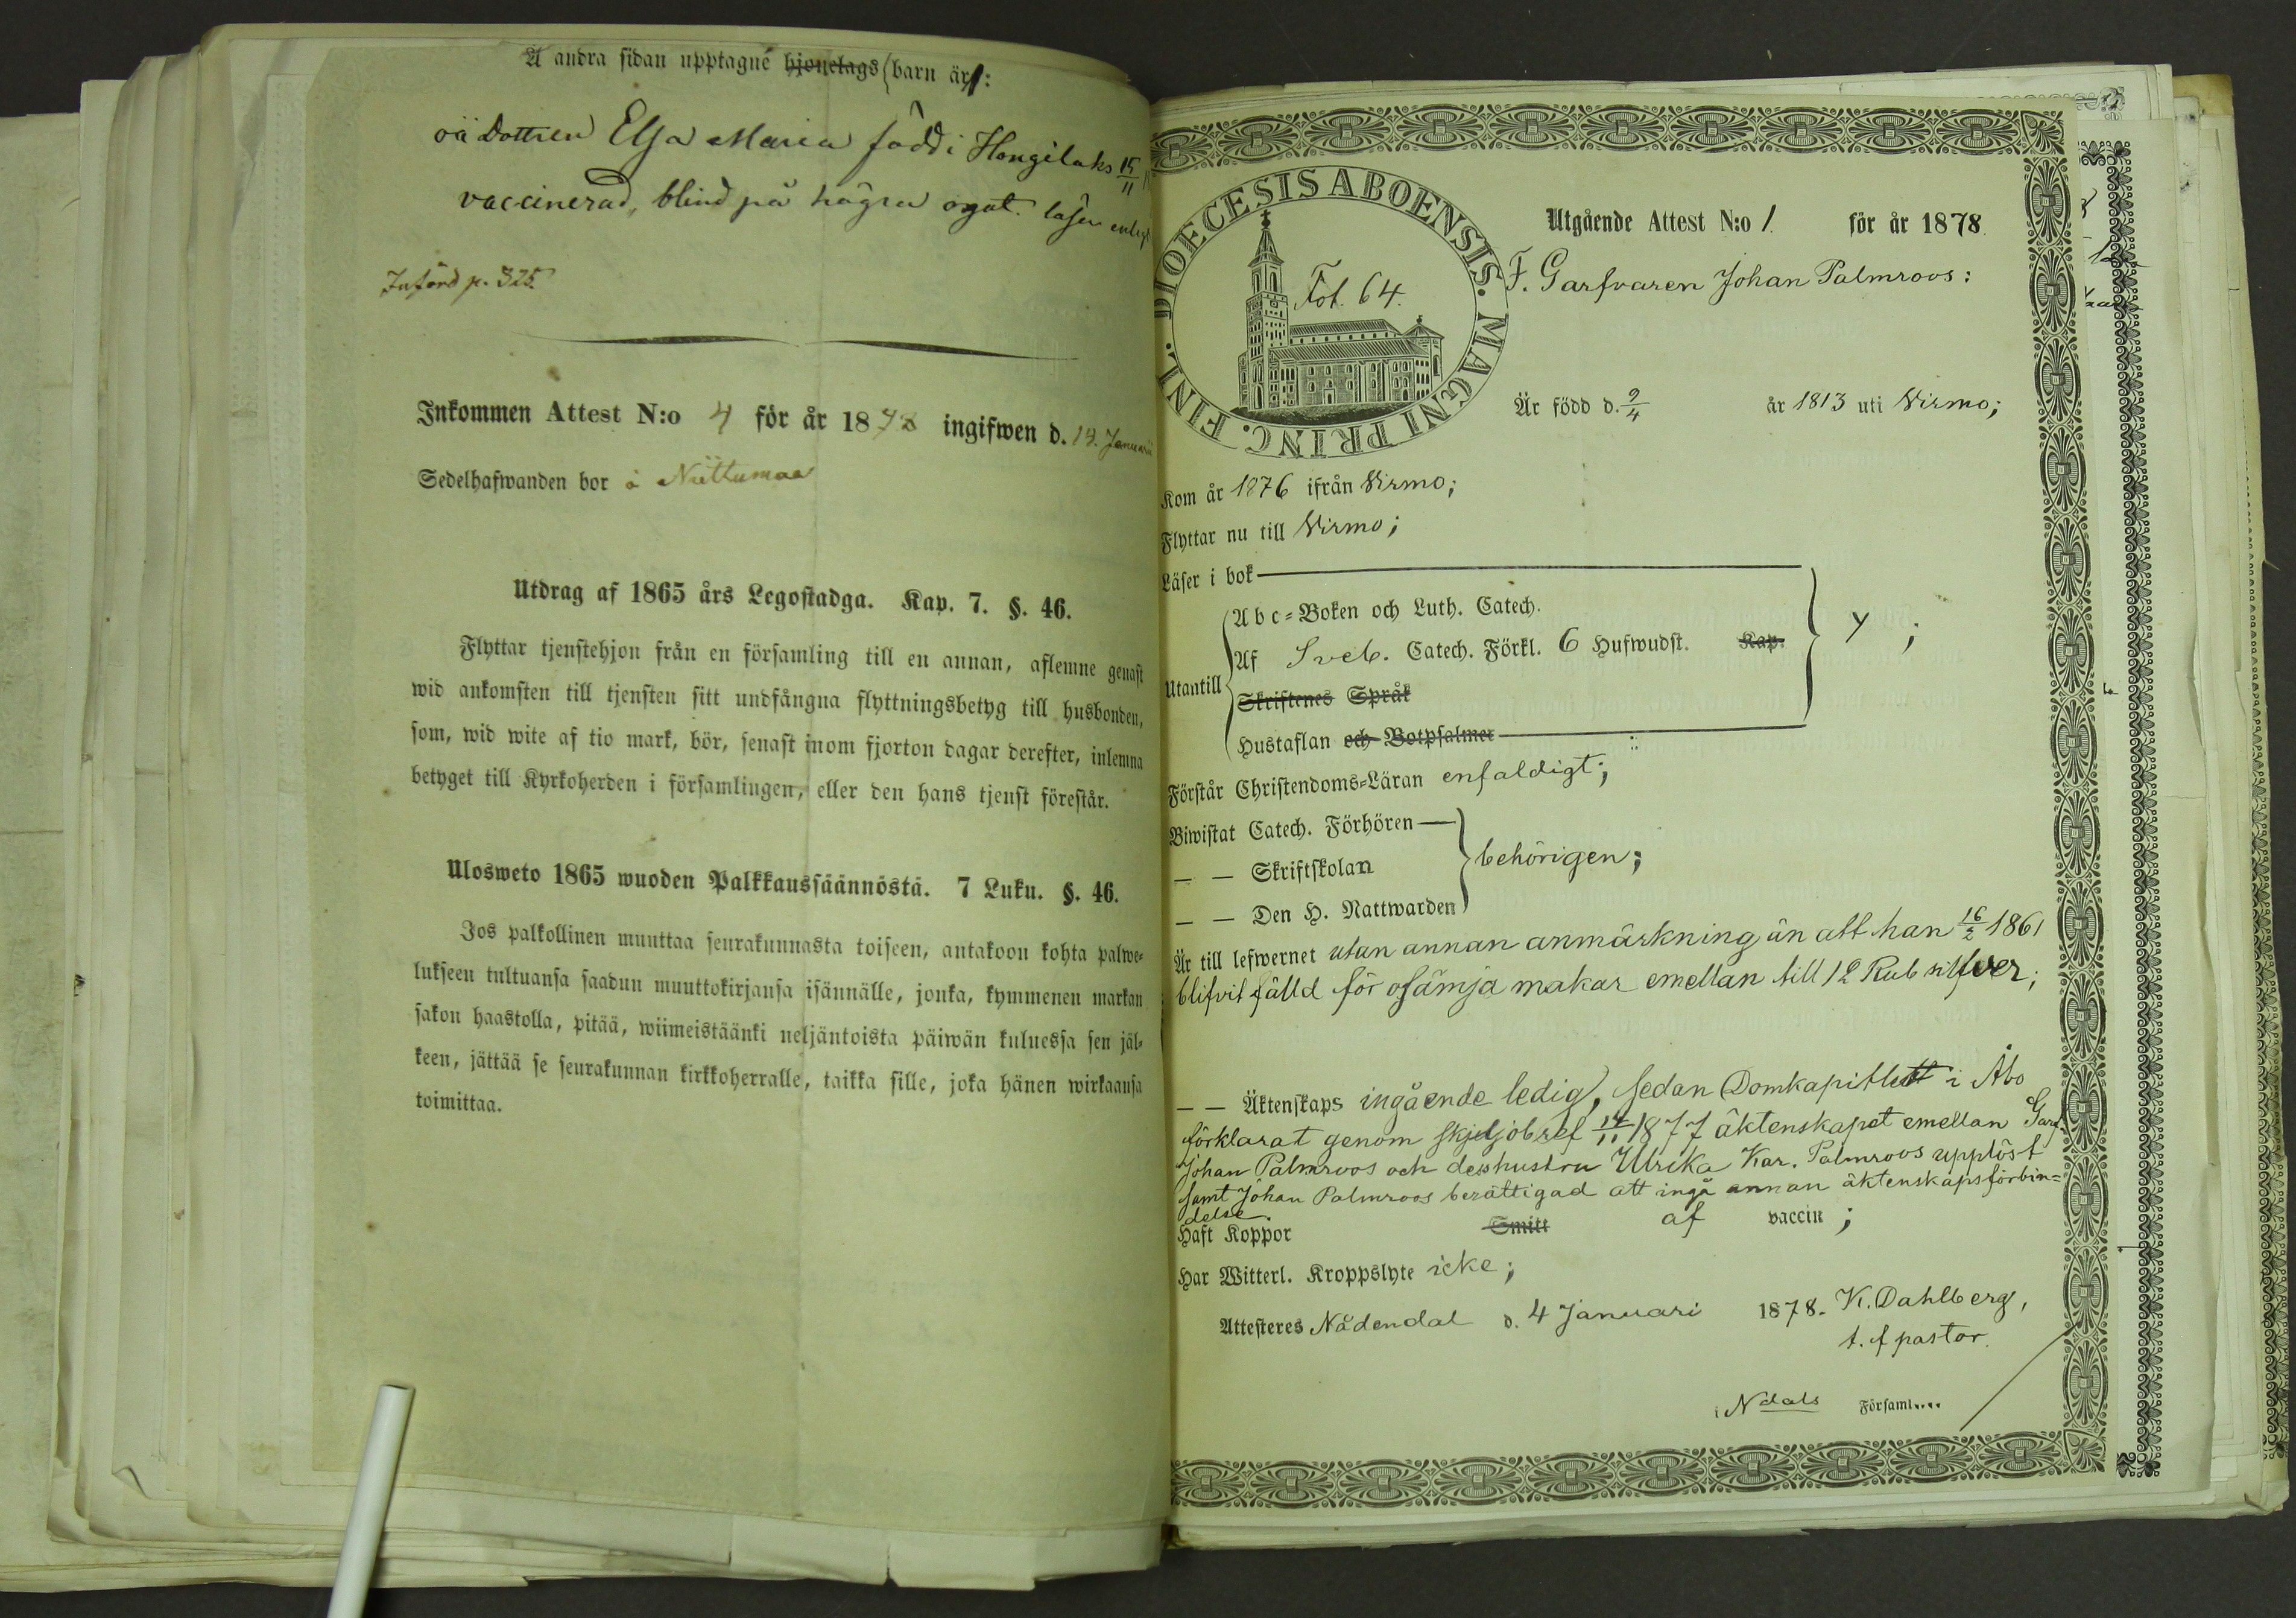 Å andra sidan upptagne hjonelags barn är 1:
oä Dottren Elsa Maria född i Hongilaks 15/11
vaccinerad, blind på högra ögat. läser enligt
Införd p. 325.
Inkommen Attest N:o 4 för år 1878 ingifwen d. 14. Januarii
Sedelhafwanden bor å Niittumaa
Utdrag af 1865 års Legostadga. Kap. 7. §. 46.
Flyttar tjenstehjon från en församling till en annan, aflemne genast
wid ankomsten till tjensten sitt undfångna flyttningsbetyg till husbonden,
som, wid wite af tio mark, bör, senast inom fjorton dagar derefter, inlemna
betyget till Kyrkoherden i församlingen, eller den hans tjenst förestår.
Ulosweto 1865 wuoden Palkkaussäännöstä. 7 Luku. §. 46.
Jos palkollinen muuttaa seurakunnasta toiseen, antakoon kohta palwe-
lukseen tultuansa saadun muuttokirjansa isännälle, jonka, kymmenen markan
sakon haastolla, pitää, wiimeistäänki neljäntoista päiwän kuluessa sen jäl-
keen, jättää se seurakunnan kirkkoherralle, taikka sille, joka hänen wirkaansa
toimittaa.
DIOECESIS ABOENSIS. MAGNI PRINC. FINL.
Fol. 64.
Utgående Attest N:o 1. för år 1878.
F. Garfvaren Johan Palmroos:
Är född d. 9/4 år 1813 uti Virmo;
Kom år 1876 ifrån Virmo;
Flyttar nu till Virmo;
Läser i bok
Utantill
A b c-Boken och Luth. Catech.
Af Sveb. Catech. Förkl. 6 Hufwudst. Kap.
Skriftenes Språk
Hustaflan och Botpsalmer
y ;
Förstår Christendoms-Läran enfaldigt;
Biwistat Catech. Förhören
— — Skriftskolan
— — Den H. Nattwarden
behörigen;
Är till lefwernet utan annan anmärkning än att han 16/2 1861
blifvit fälld för osämja makar emellan till 12 Rub silfver;
— — Äktenskaps ingående ledig, sedan Domkapitlet i Åbo
förklarat genom skiljobref 14/11 1877 äktenskapet emellan Garf.
Johan Palmroos och desshustru Ulrika Kar. Palmroos upplöst
samt Johan Palmroos berättigad att ingå annan äktenskapsförbin=
delse.
Haft Koppor Smitt af vaccin;
Har Witterl. Kroppslyte icke;
Attesteres Nådendal d. 4 Januari 1878. K. Dahlberg,
t. f pastor.
i Ndals Församl....